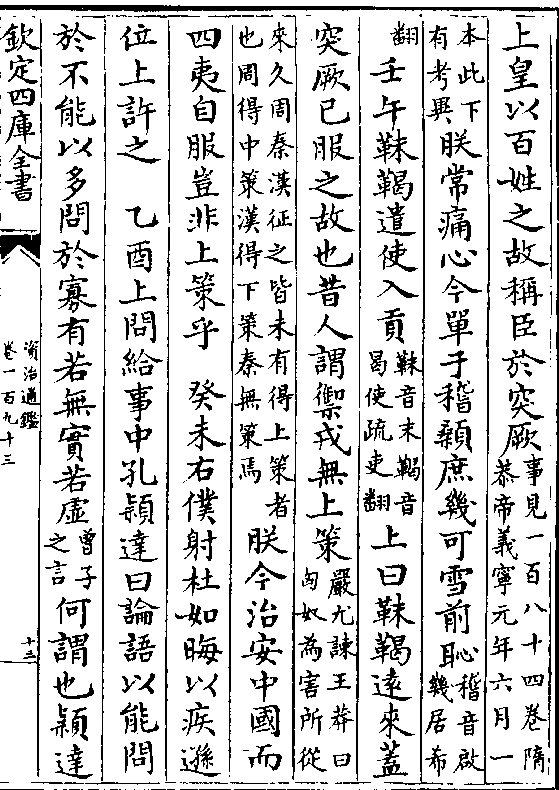 上皇以百姓之故稱臣於突厥事見一百八十四卷隋恭帝義寧元年六月一
本此下有考異朕常痛心今單于稽顙庶幾可雪前恥稽音啟幾居希
翻壬午靺鞨遣使入貢靺音末鞨音曷使疏吏翻上曰靺鞨遠來蓋
突厥已服之故也昔人謂禦戎無上策嚴尤諫王莽曰匈奴為害所從
來久周秦漢征之皆未有得上策者也周得中策漢得下策秦無策焉朕今治安中國而
四夷自服豈非上策乎 癸未右僕射杜如晦以疾遜
位上許之 乙酉上問給事中孔穎達曰論語以能問
於不能以多問於寡有若無實若虛曾子之言何謂也穎達
欽定四庫全書
資治通鑑
卷一百九十三
十三